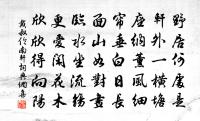 野居何處是
軒外一橫塘
座納薰風細
簾垂白日長
面山如對畫
臨水坐流觴
更愛閑花木
欣欣得向陽
戴叔倫南軒詞典網集